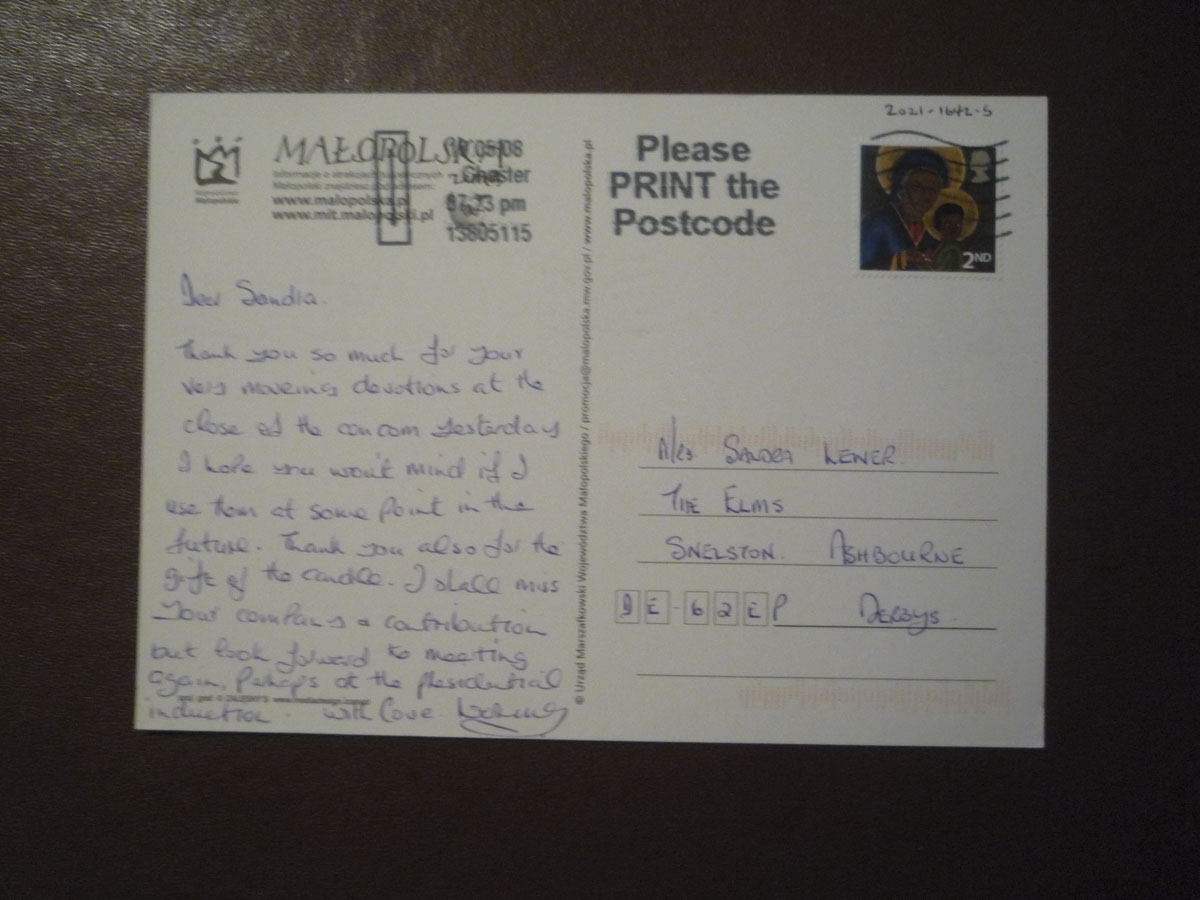 2021-1642-5
MAŁOPOLSKA
Informacje o atrakcjach turystycznych
www.malopolska.pl
www.mit.malopolski.pl
Małopolska
05-08
Chester
07:23 pm
13805115
Please
PRINT the
Postcode
2ND
© Urząd Marszałkowski Województwa Małopolskiego / promocja@malopolska.mw.gov.pl / www.malopolska.pl
Dear Sandra.
Thank you so much for your
very moving devotions at the
close of the concom yesterday
I hope you won't mind if I
use them at some point in the
future. Thank you also for the
gift of the candle. I shall miss
your company & contribution
but look forward to meeting
again, Perhaps at the presidential
induction. with Love
Mrs SANDRA LEWER.
THE ELMS
SNELSTON. ASHBOURNE
DE-62EP DERBYS.